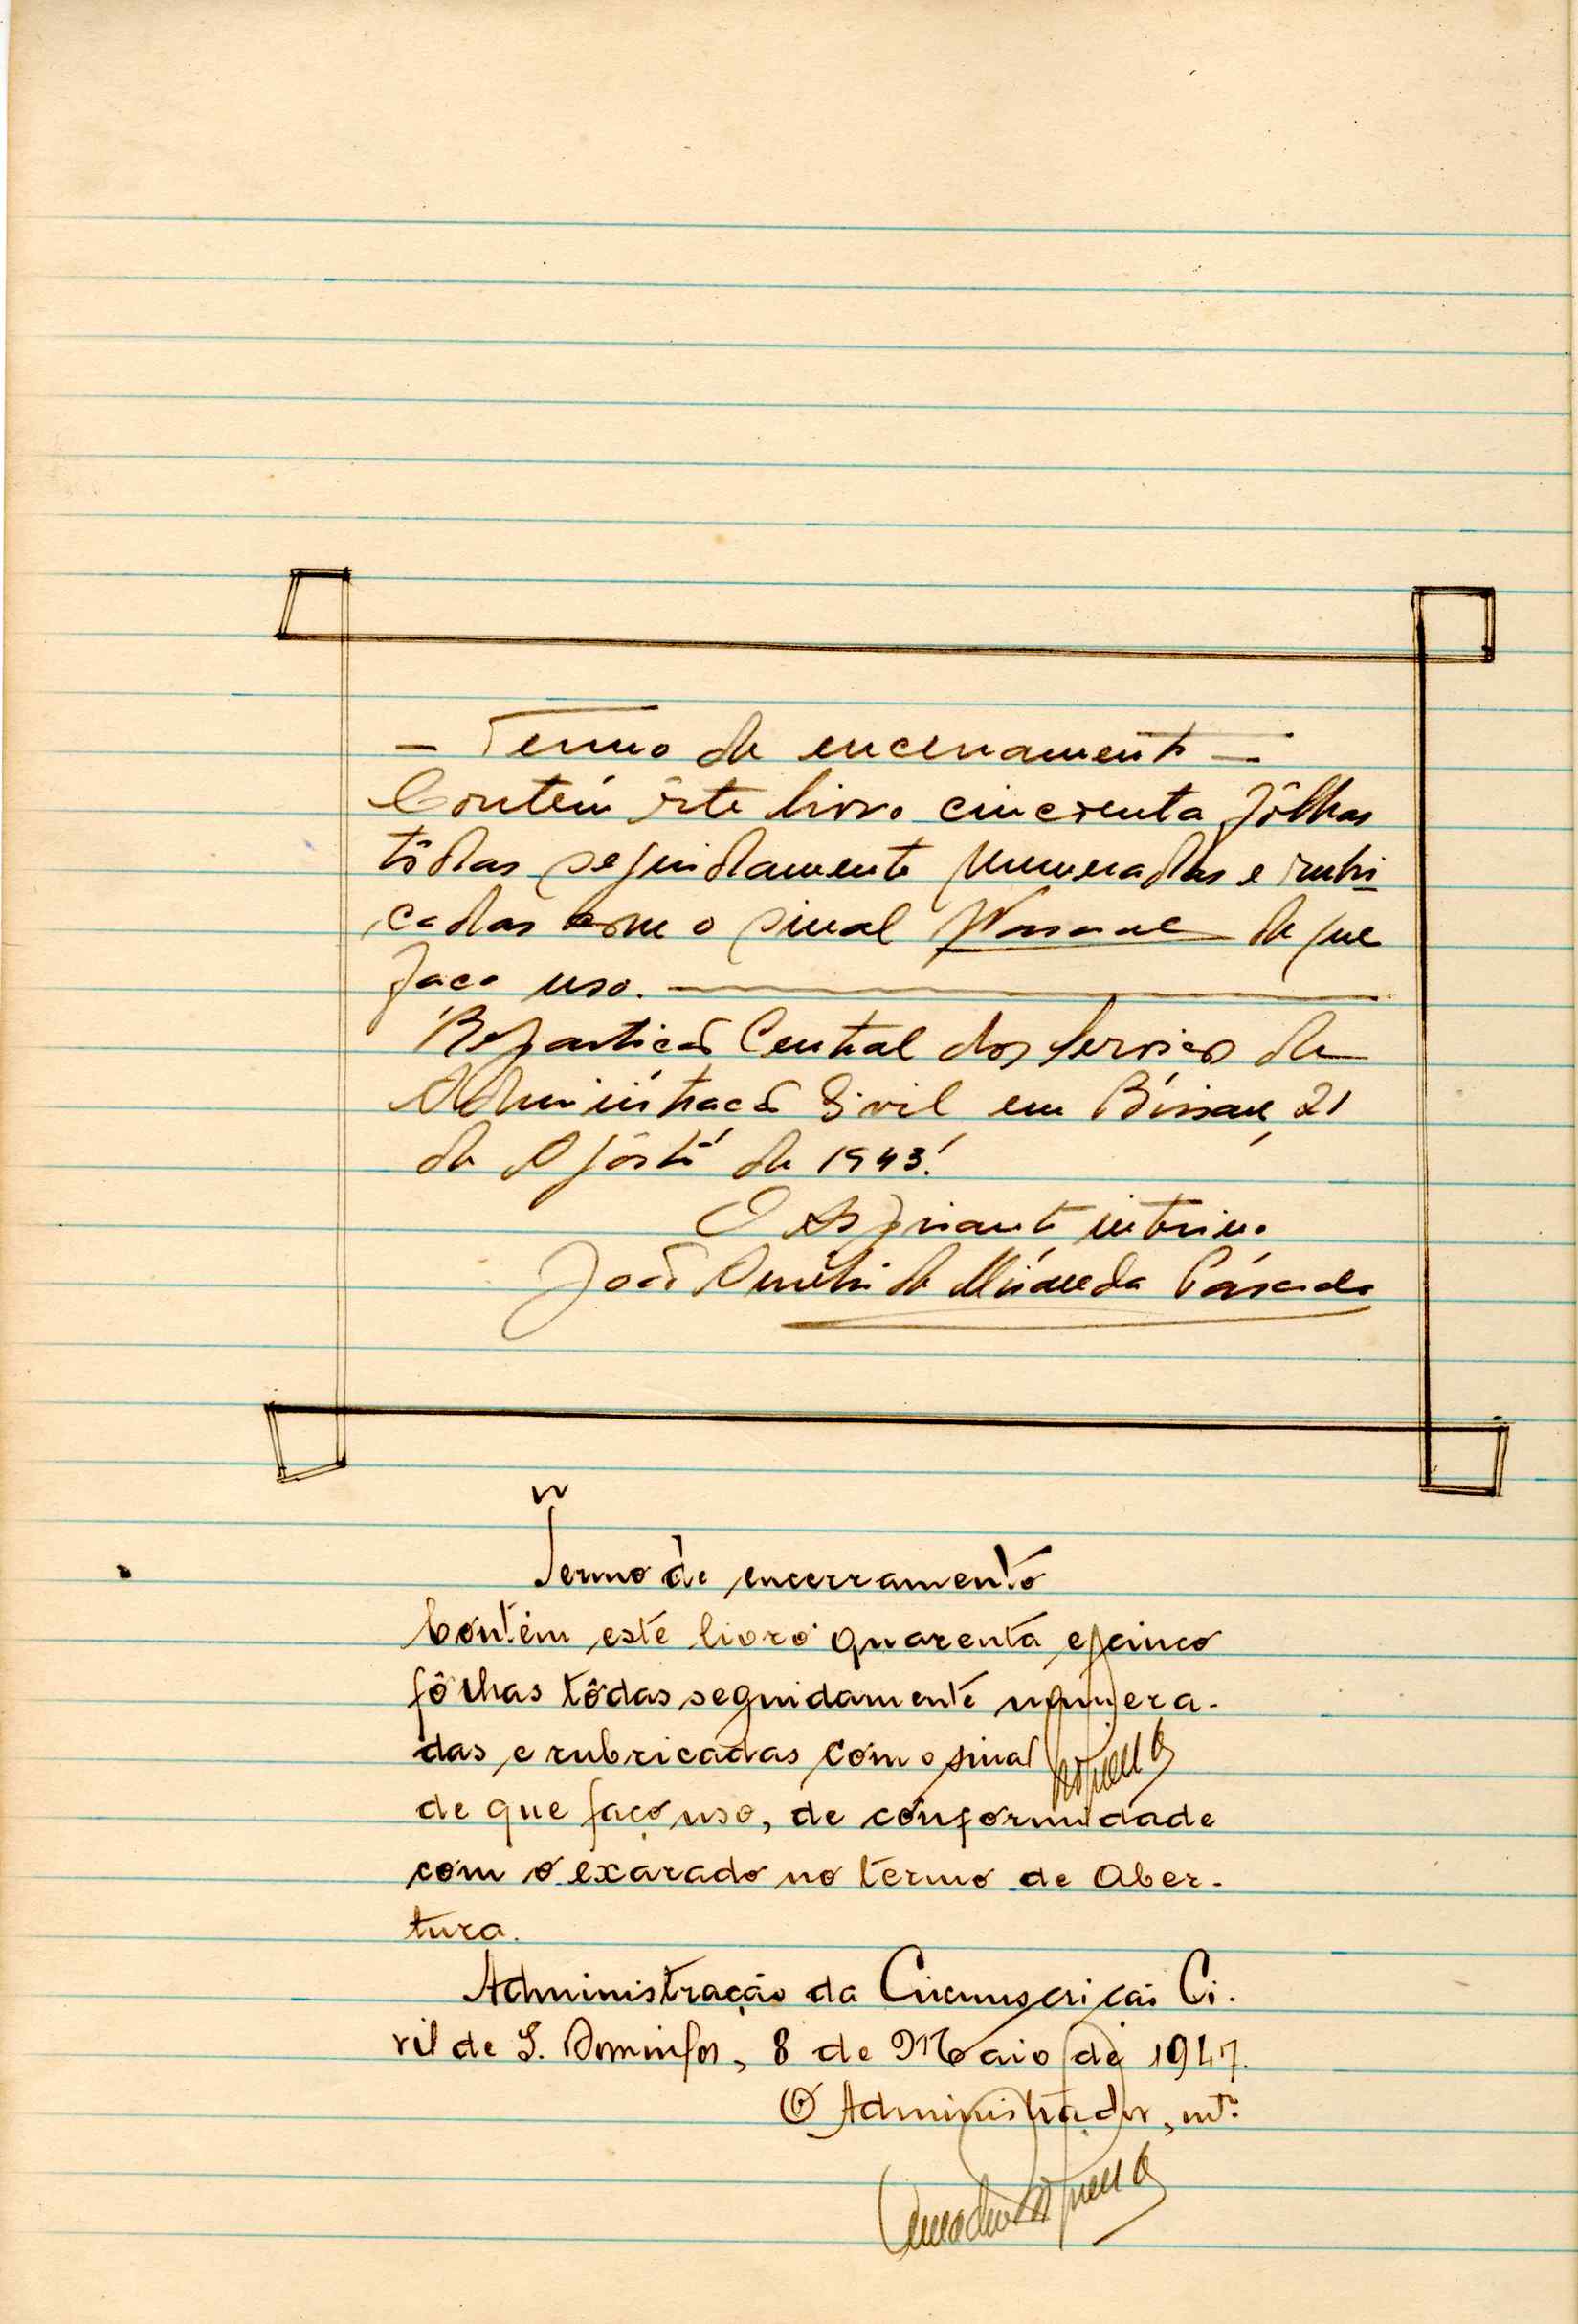 — Termo de encerramento —
Contém êste livro cincoenta fôlhas
tôdas seguidamente numeradas e rubri
cadas com o sinal de que
faço uso.
Repartição Central dos Serviços de
Administração Civil em Bissau, 21
de Agôsto de 1943.
O Aspirante interino
João de
Termo de encerramento
Contém este livro quarenta e cinco
fôlhas tôdas seguidamente numera-
das e rubricadas com o sinal
de que faço uso, de conformidade
com o exarado no termo de Aber-
tura.
Administração da Circunscrição Ci-
vil de S. Domingos, 8 de Maio de 1947.
O Administrador, intº.